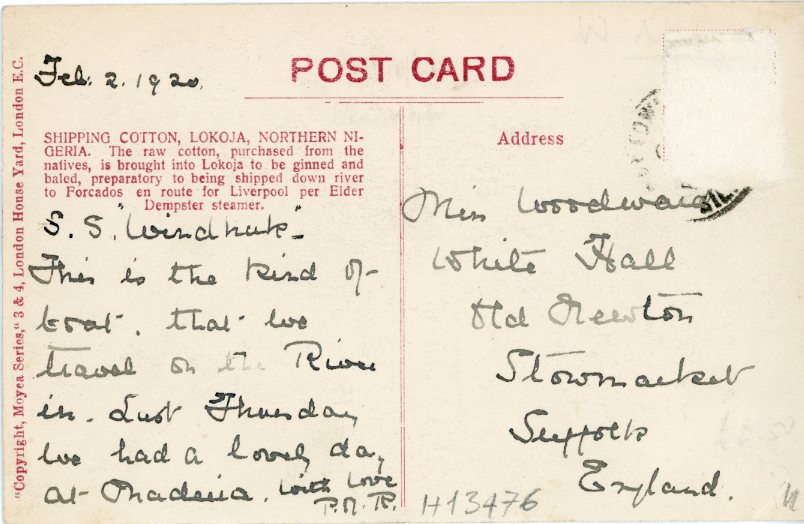 "Copyright, Moyea Series," 3 & 4, London House Yard, London E.C.
Feb. 2. 1920.
POST CARD
SHIPPING COTTON, LOKOJA, NORTHERN NI-
GERIA. The raw cotton, purchased from the
natives, is brought into Lokoja to be ginned and
baled, preparatory to being shipped down river
to Forcados en route for Liverpool per Elder
Dempster steamer.
S. S. "Windhuk"
This is the kind of
boat. that we
travel on the River
in. Last Thursday
we had a lovely day
at Madeira. with love
P.M.R.
Address
Miss Woodward
White Hall
Old Newton
Stowmarket
Suffolk
England.
H13476